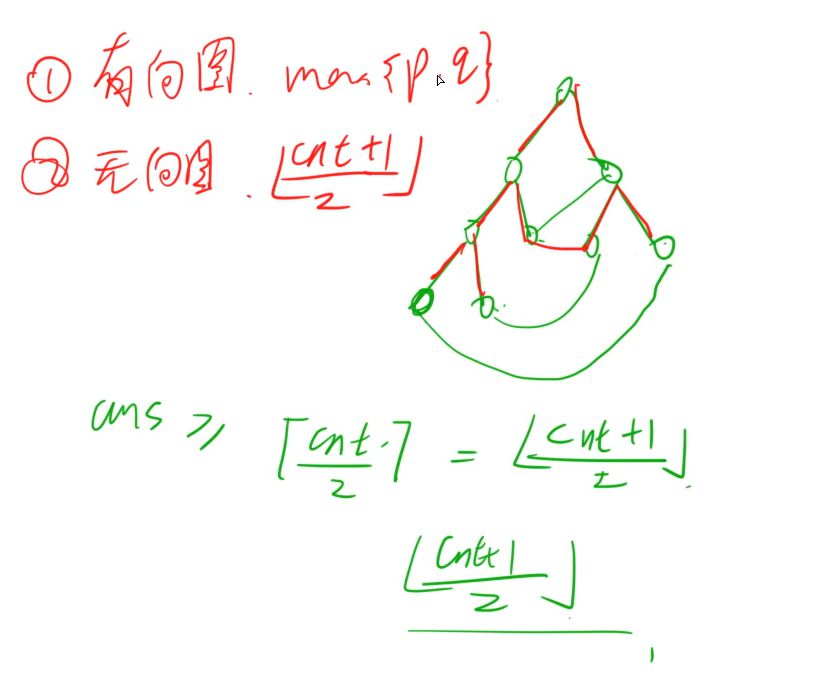 ① 有向图. max{p,q}
② 无向图. ⌊(cnt+1)/2⌋
ans ≥ ⌈cnt/2⌉ = ⌊(cnt+1)/2⌋.
⌊(cnt+1)/2⌋